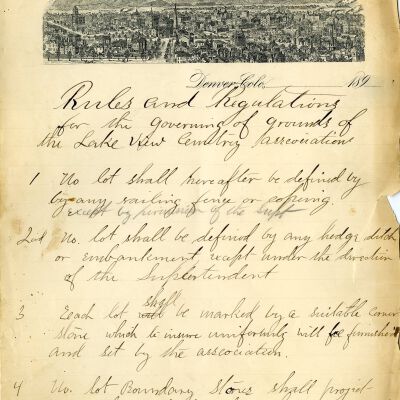 Denver, Colo. 189
Rules and Regulations
for the governing of grounds of
the Lake View Cemetry association
1 No lot shall hereafter be defined by
by any railing fence or copeing.
except by permission of the Supt
2nd No. lot shall be defined by any hedge ditch
or embankment, except under the direction
of the Supertendent
shall
3 Each lot will be marked by a suitable corner
stone which to insure uniformity will be furnished
and set by the association.
4 No. lot Boundary stones shall project